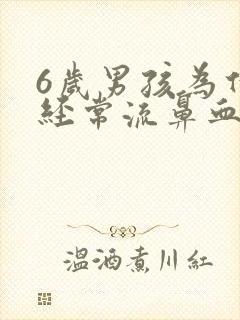 6歲男孩為
經常流鼻血
溫酒煮川紅